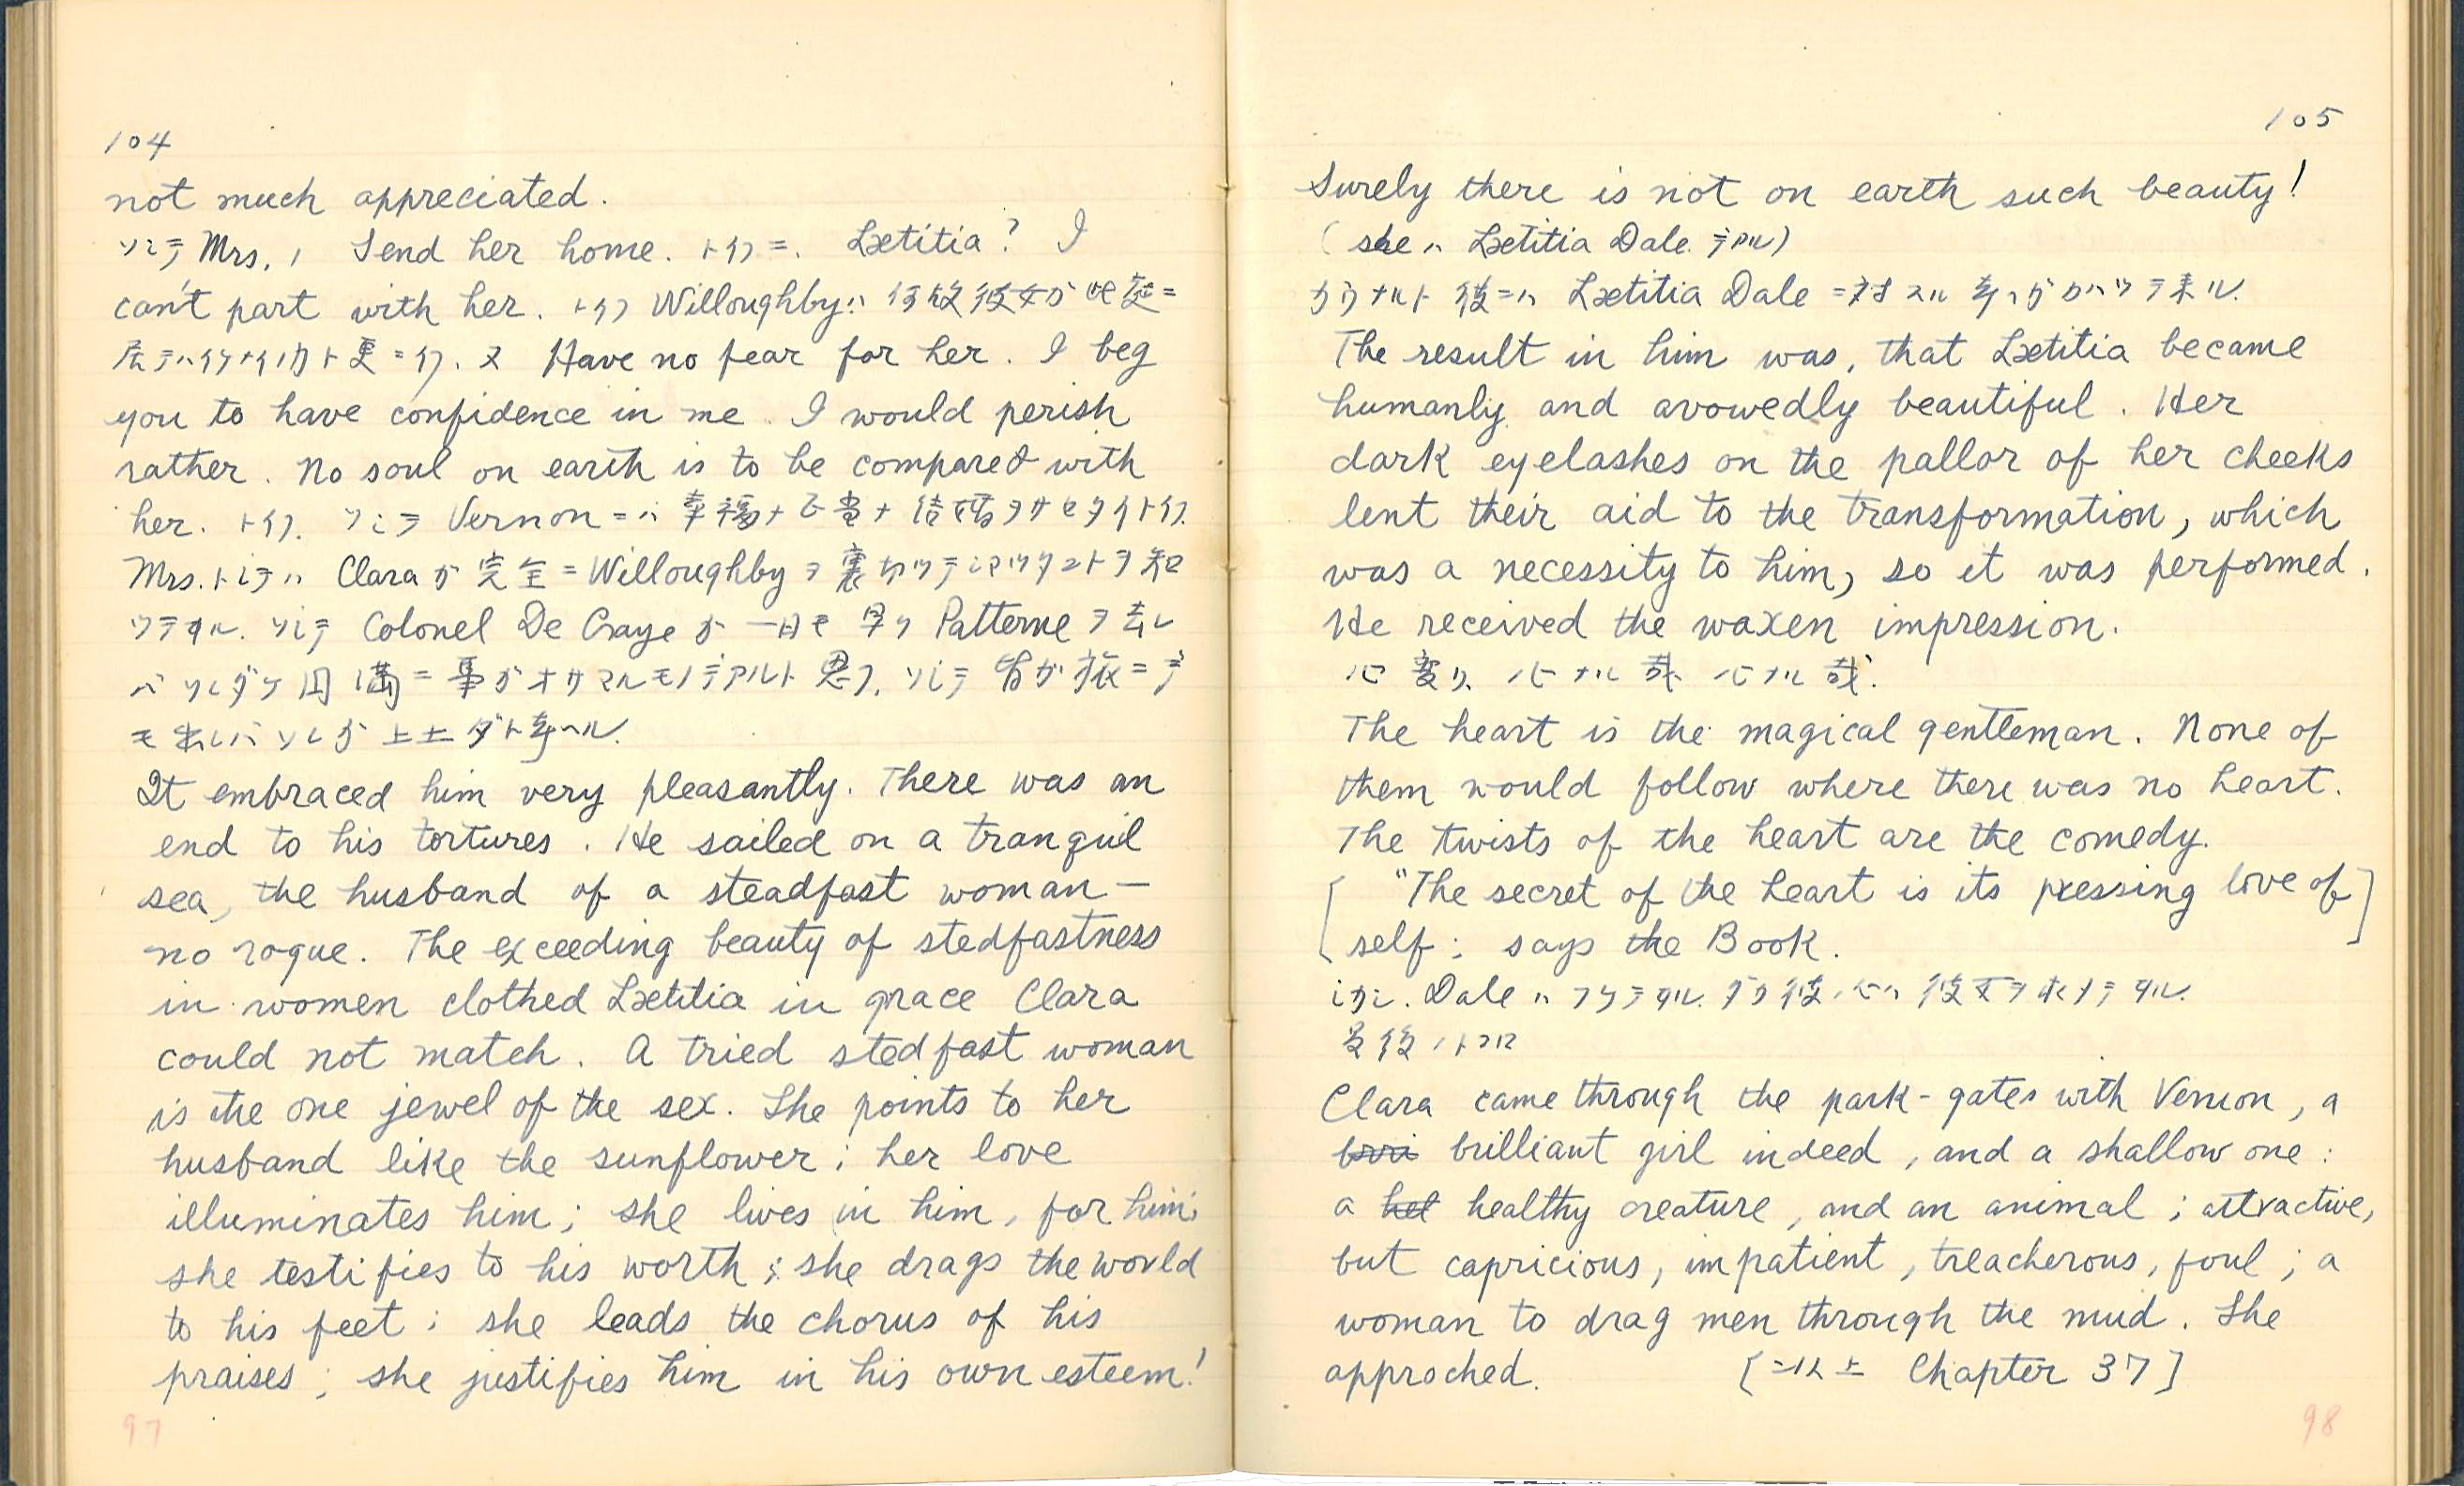 104
not much appreciated.
ソシテ Mrs. ノ Send her home. ト云フニ. Lætitia? I
can't part with her. ト云フ Willoughbyハ 何故彼女ガ此處ニ
居テハイケナイノカト更ニ云フ. 又 Have no fear for her. I beg
you to have confidence in me. I would perish
rather. No soul on earth is to be compared with
her. ト云フ. ソシテ Vernon ニハ 幸福ナ 結婚ヲサセタイト云フ.
Mrs. トシテハ Clara ガ 完全ニ Willoughby ヲ 裏切ツテシマツタコトヲ 知
ツテオル. ソシテ Colonel De Craye ガ 一日モ 早ク Patterne ヲ 去レ
バ ソレダケ 円満ニ 事ガオサマルモノデアルト 思フ. ソシテ 皆ガ 旅ニデ
モ 出レバ ソレガ 上士 ダト考ヘル.
It embraced him very pleasantly. There was an
end to his tortures. He sailed on a tranquil
sea, the husband of a steadfast woman —
no rogue. The exceeding beauty of stedfastness
in women clothed Lætitia in grace Clara
could not match. A tried stedfast woman
is the one jewel of the sex. She points to her
husband like the sunflower; her love
illuminates him; she lives in him, for him;
she testifies to his worth; she drags the world
to his feet; she leads the chorus of his
praises; she justifies him in his own esteem!
97
105
Surely there is not on earth such beauty!
(she ハ Lætitia Dale デアル)
カウナルト 彼ニハ Lætitia Dale ニ対スル 考ヘガ カハツテ来ル.
The result in him was, that Lætitia became
humanly and avowedly beautiful. Her
dark eyelashes on the pallor of her cheeks
lent their aid to the transformation, which
was a necessity to him, so it was performed.
He received the waxen impression.
心 変リ. 心ナル 哉 心ナル 哉.
The heart is the magical gentleman. None of
them would follow where there was no heart.
The twists of the heart are the comedy.
[ "The secret of the heart is its pressing love of ]
self; says the Book.
シカシ. Dale ハ フツテオル. 彼ノ心ハ 彼女ヲ求メテオル.
最後ノトコロ
Clara came through the park-gates with Vernon, a
bri brilliant girl indeed, and a shallow one:
a hel healthy creature, and an animal; attractive,
but capricious, impatient, treacherous, foul; a
woman to drag men through the mud. She
approched. [以上 Chapter 37]
98